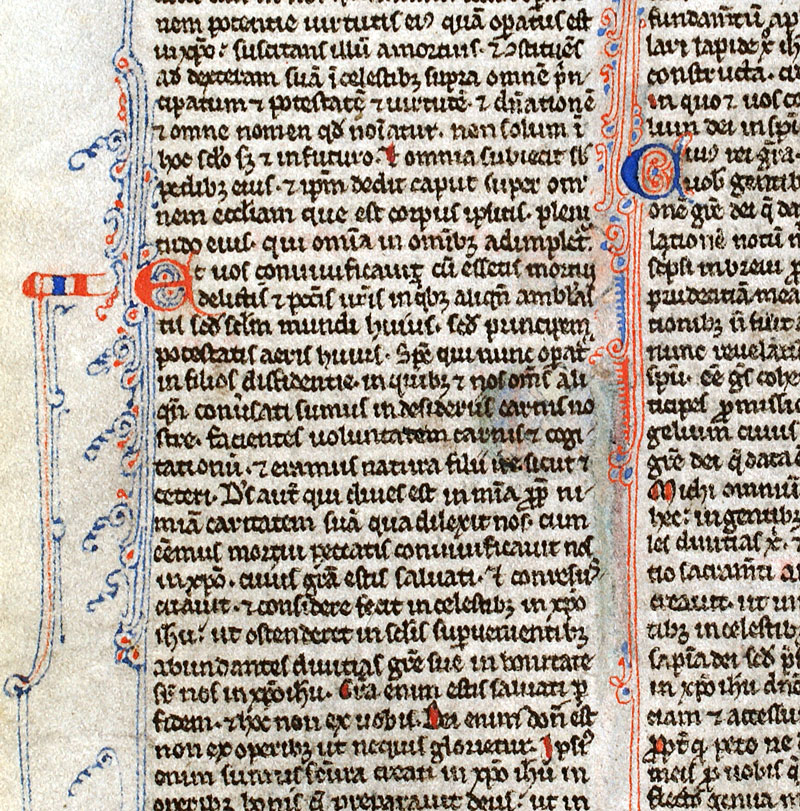 nem potentie uirtutis eiꝰ quā opatus est
in xpo suscitans illū a mortuis · ⁊ ꝯstituēs
ad dexteram suā ī celestibꝫ supra omnē pͥn
cipatum ⁊ potestatē ⁊ uirtutē · ⁊ dn̄ationē
⁊ omne nomen qd noīatur · non solum ī
hoc sclo sꝫ ⁊ in futuro · Et omnia subiecit sb
pedibꝫ eius · ⁊ ipm dedit caput super om
nem eccliam que est corpus ipsius · pleni
tudo eius · qui omīa in omībꝫ adimplet̄
Et uos conuiuificauit cū essetis mortui
delictis ⁊ pctīs ur̄is in qͥbꝫ aliqn̄ ambłas
tis scdm sclm mundi huius · scdm principem
potestatis aeris huius · Spc qui nunc opat̄
in filios diffidentie · in quibꝫ ⁊ nos oms ali
qn̄ conuͥsati sumus in desideriis carnis no
stre · facientes uoluntatem carnis ⁊ cogi
tationū · ⁊ eramus natura filii ire sicut ⁊
ceteri · Ds aut̄ qui diues est in mīa ꝓpt̄ ni
miā caritatem suā qua dilexit nos · cum
eēmus mortui peccatis conuiuificauit nos
in xpo · cuius grā estis saluati · Et conresus
citauit · ⁊ considere fecit in celestibꝫ in xpo
ihu · ut ostenderet in sclis supuenientibꝫ
abundantes diuitias gre sue in bonitate
sr̄ nos in xpo ihu · Gra enim estis saluati p
fidem · ⁊ hoc non ex uobis · Dei enim donū est
non ex operibꝫ ut nequis glorietur · Ipsiꝰ
enim sumus fc̄ura creati in xpo ihu in
operibꝫ bonis q̄ preparauit deus · ut in
fundamtū ap
lari lapide x ih
constructa · c
in quo ⁊ uos co
lum dei in spi
Cuiꝰ rei grā ·
uob gentib
onē gre dei q̄ da
lationē notū
scpsi in breui p
prudentiā mea
tionibꝫ n̄ fuit
nunc reuelatū
spu · Ee gs cohe
ticipes ꝓmissio
gelium cuius
gre dei q̄ data
Michi omniū
hec · in gentibꝫ
les diuitias x · ⁊
tio sacramti a
creauit · ut in
tibꝫ in celestibꝫ
sapīa dei scdm p̄
in xpo ihu dn̄o
ciam ⁊ accessu
Propt̄ q peto ne
meis p uobis q̄
flecto genua m